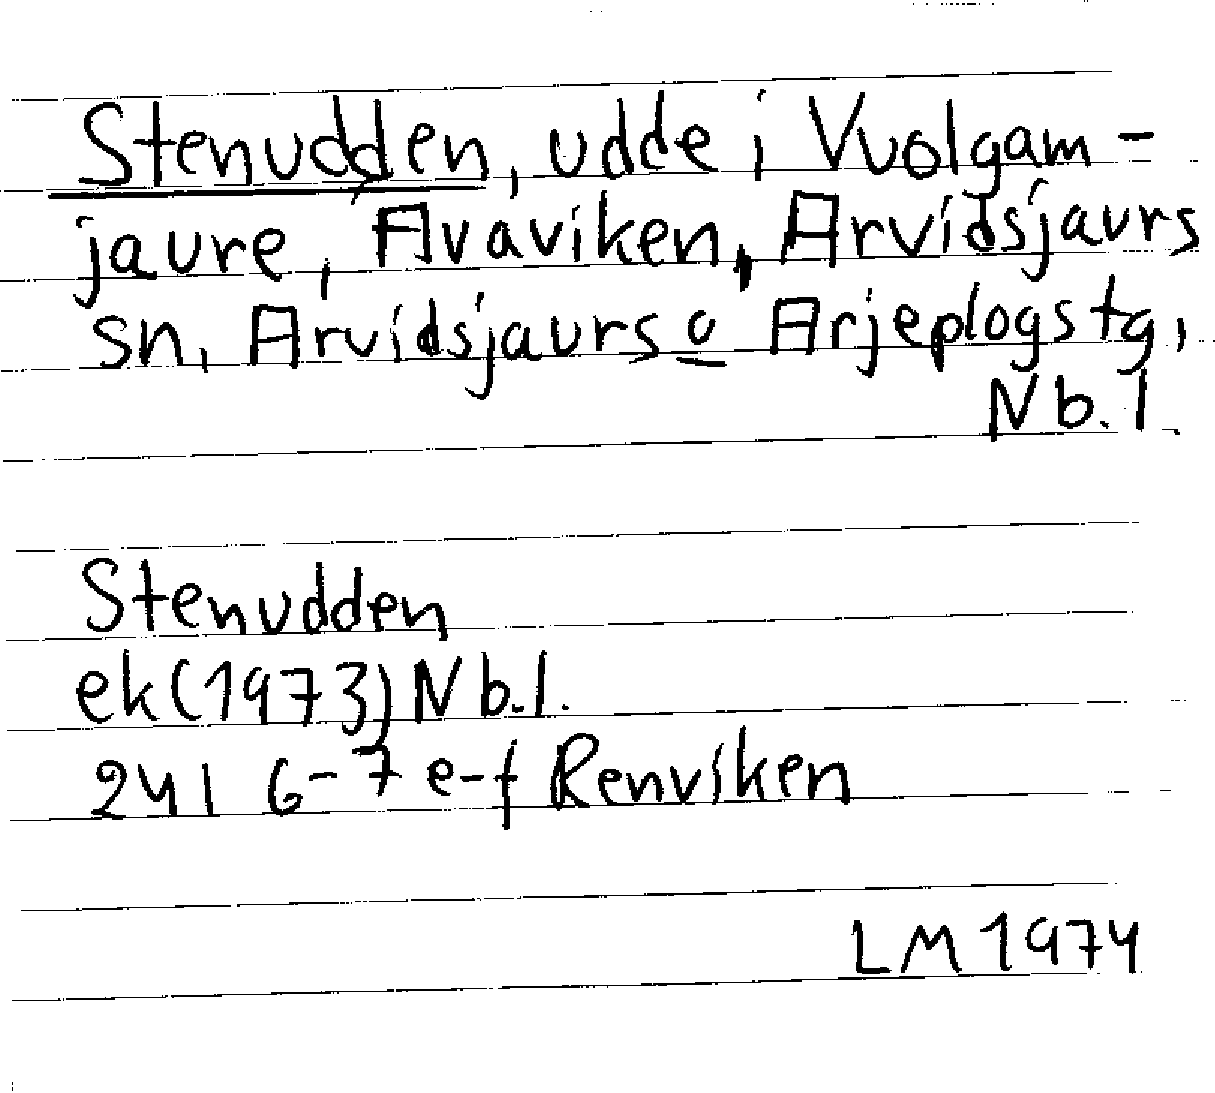 Stenudden, udde i Vuolgam-
jaure, Avaviken, Arvidsjaurs
sn, Arvidsjaurs o Arjeplogs tg,
Nb. l.
Stenudden
ek (1973) Nb. l.
24 I 6-7 e-f Renviken
LM 1974